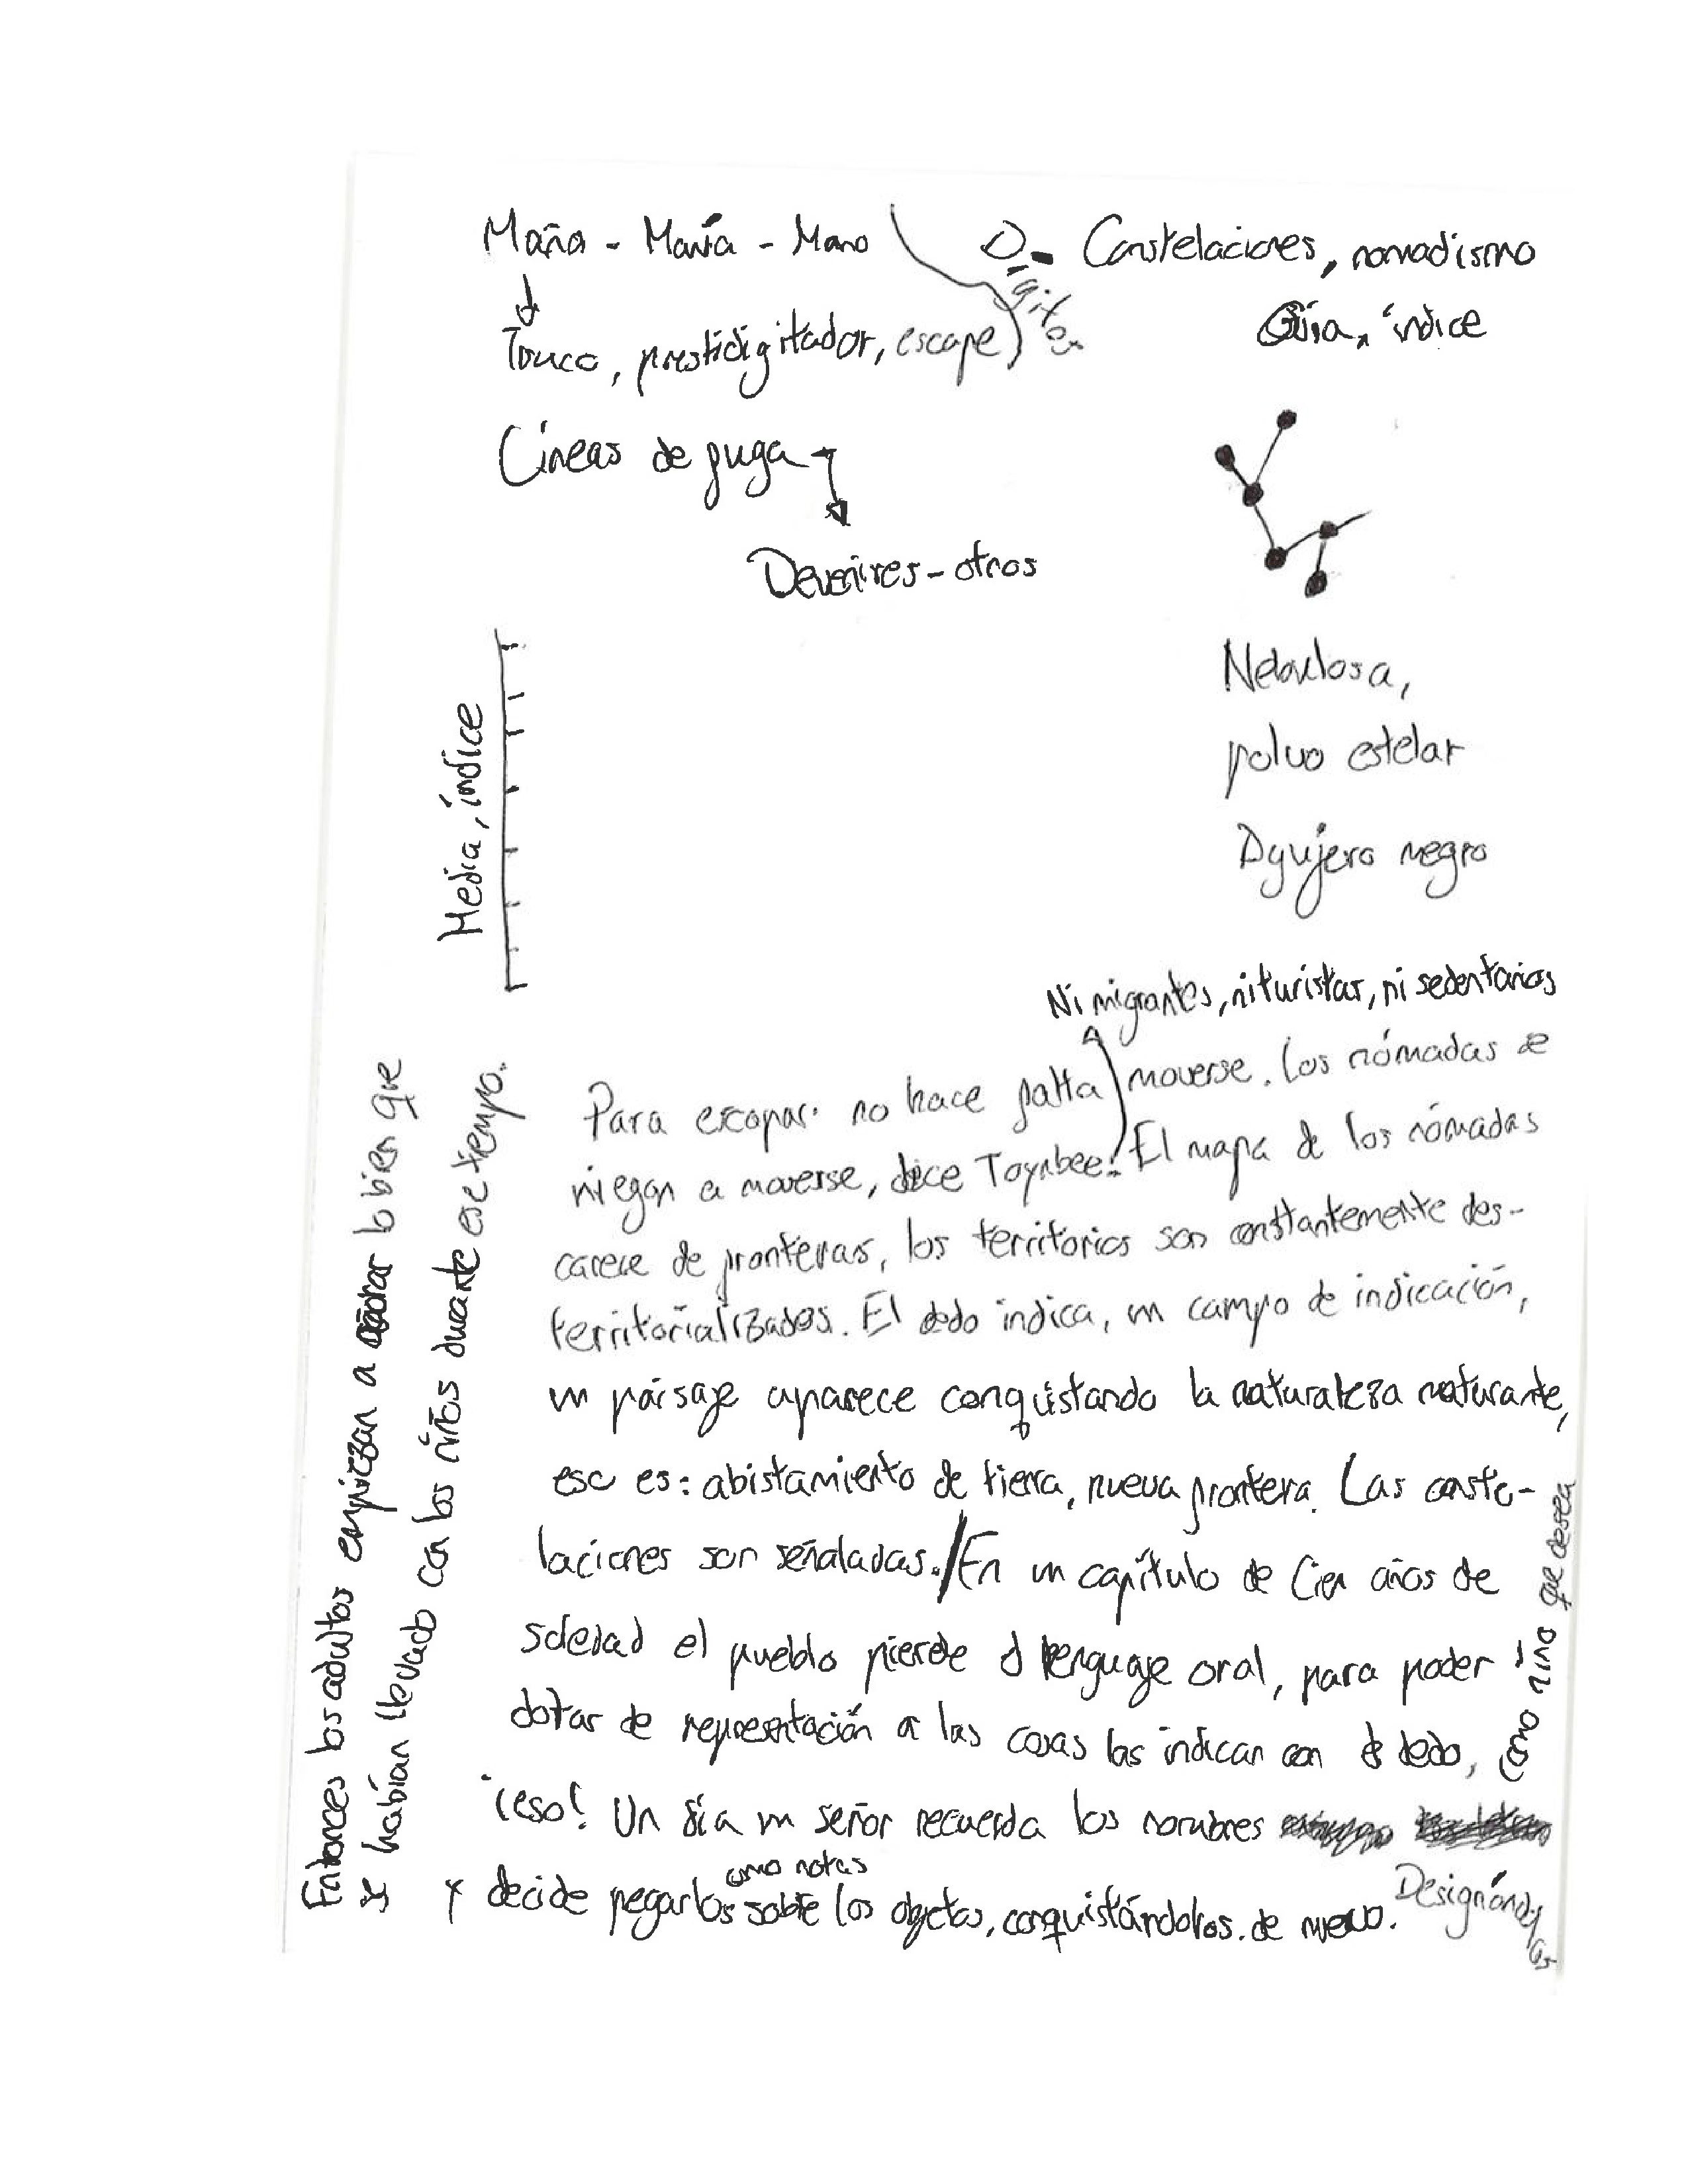 Maña - Manía - Mano
Truco, prestidigitador, escape)
Líneas de fuga
Devenires-otros
D- Constelaciones, nomadismo
Guía, índice
Nebulosa,
polvo estelar
Agujero negro
Media, índice
Ni migrantes, ni turistas, ni sedentarios
Para escapar no hace falta moverse. Los nómadas se
niegan a moverse, dice Toynbee. El mapa de los nómadas
carece de fronteras, los territorios son constantemente des-
territorializados. El dedo indica, un campo de indicación,
un paisaje aparece conquistando la naturaleza naturante,
eso es: abistamiento de tierra, nueva frontera. Las conste-
laciones son señaladas. / En un capítulo de Cien años de
soledad el pueblo pierde el lenguaje oral, para poder
dotar de representación a las cosas las indican con el dedo,
como niño que desea
¡eso! Un día un señor recuerda los nombres
como notas
y decide pegarlos sobre los objetos, conquistándolos de nuevo. Designándolos
Entonces los adultos empiezan a añorar lo bien que
se habían llevado con los niños durante ese tiempo.